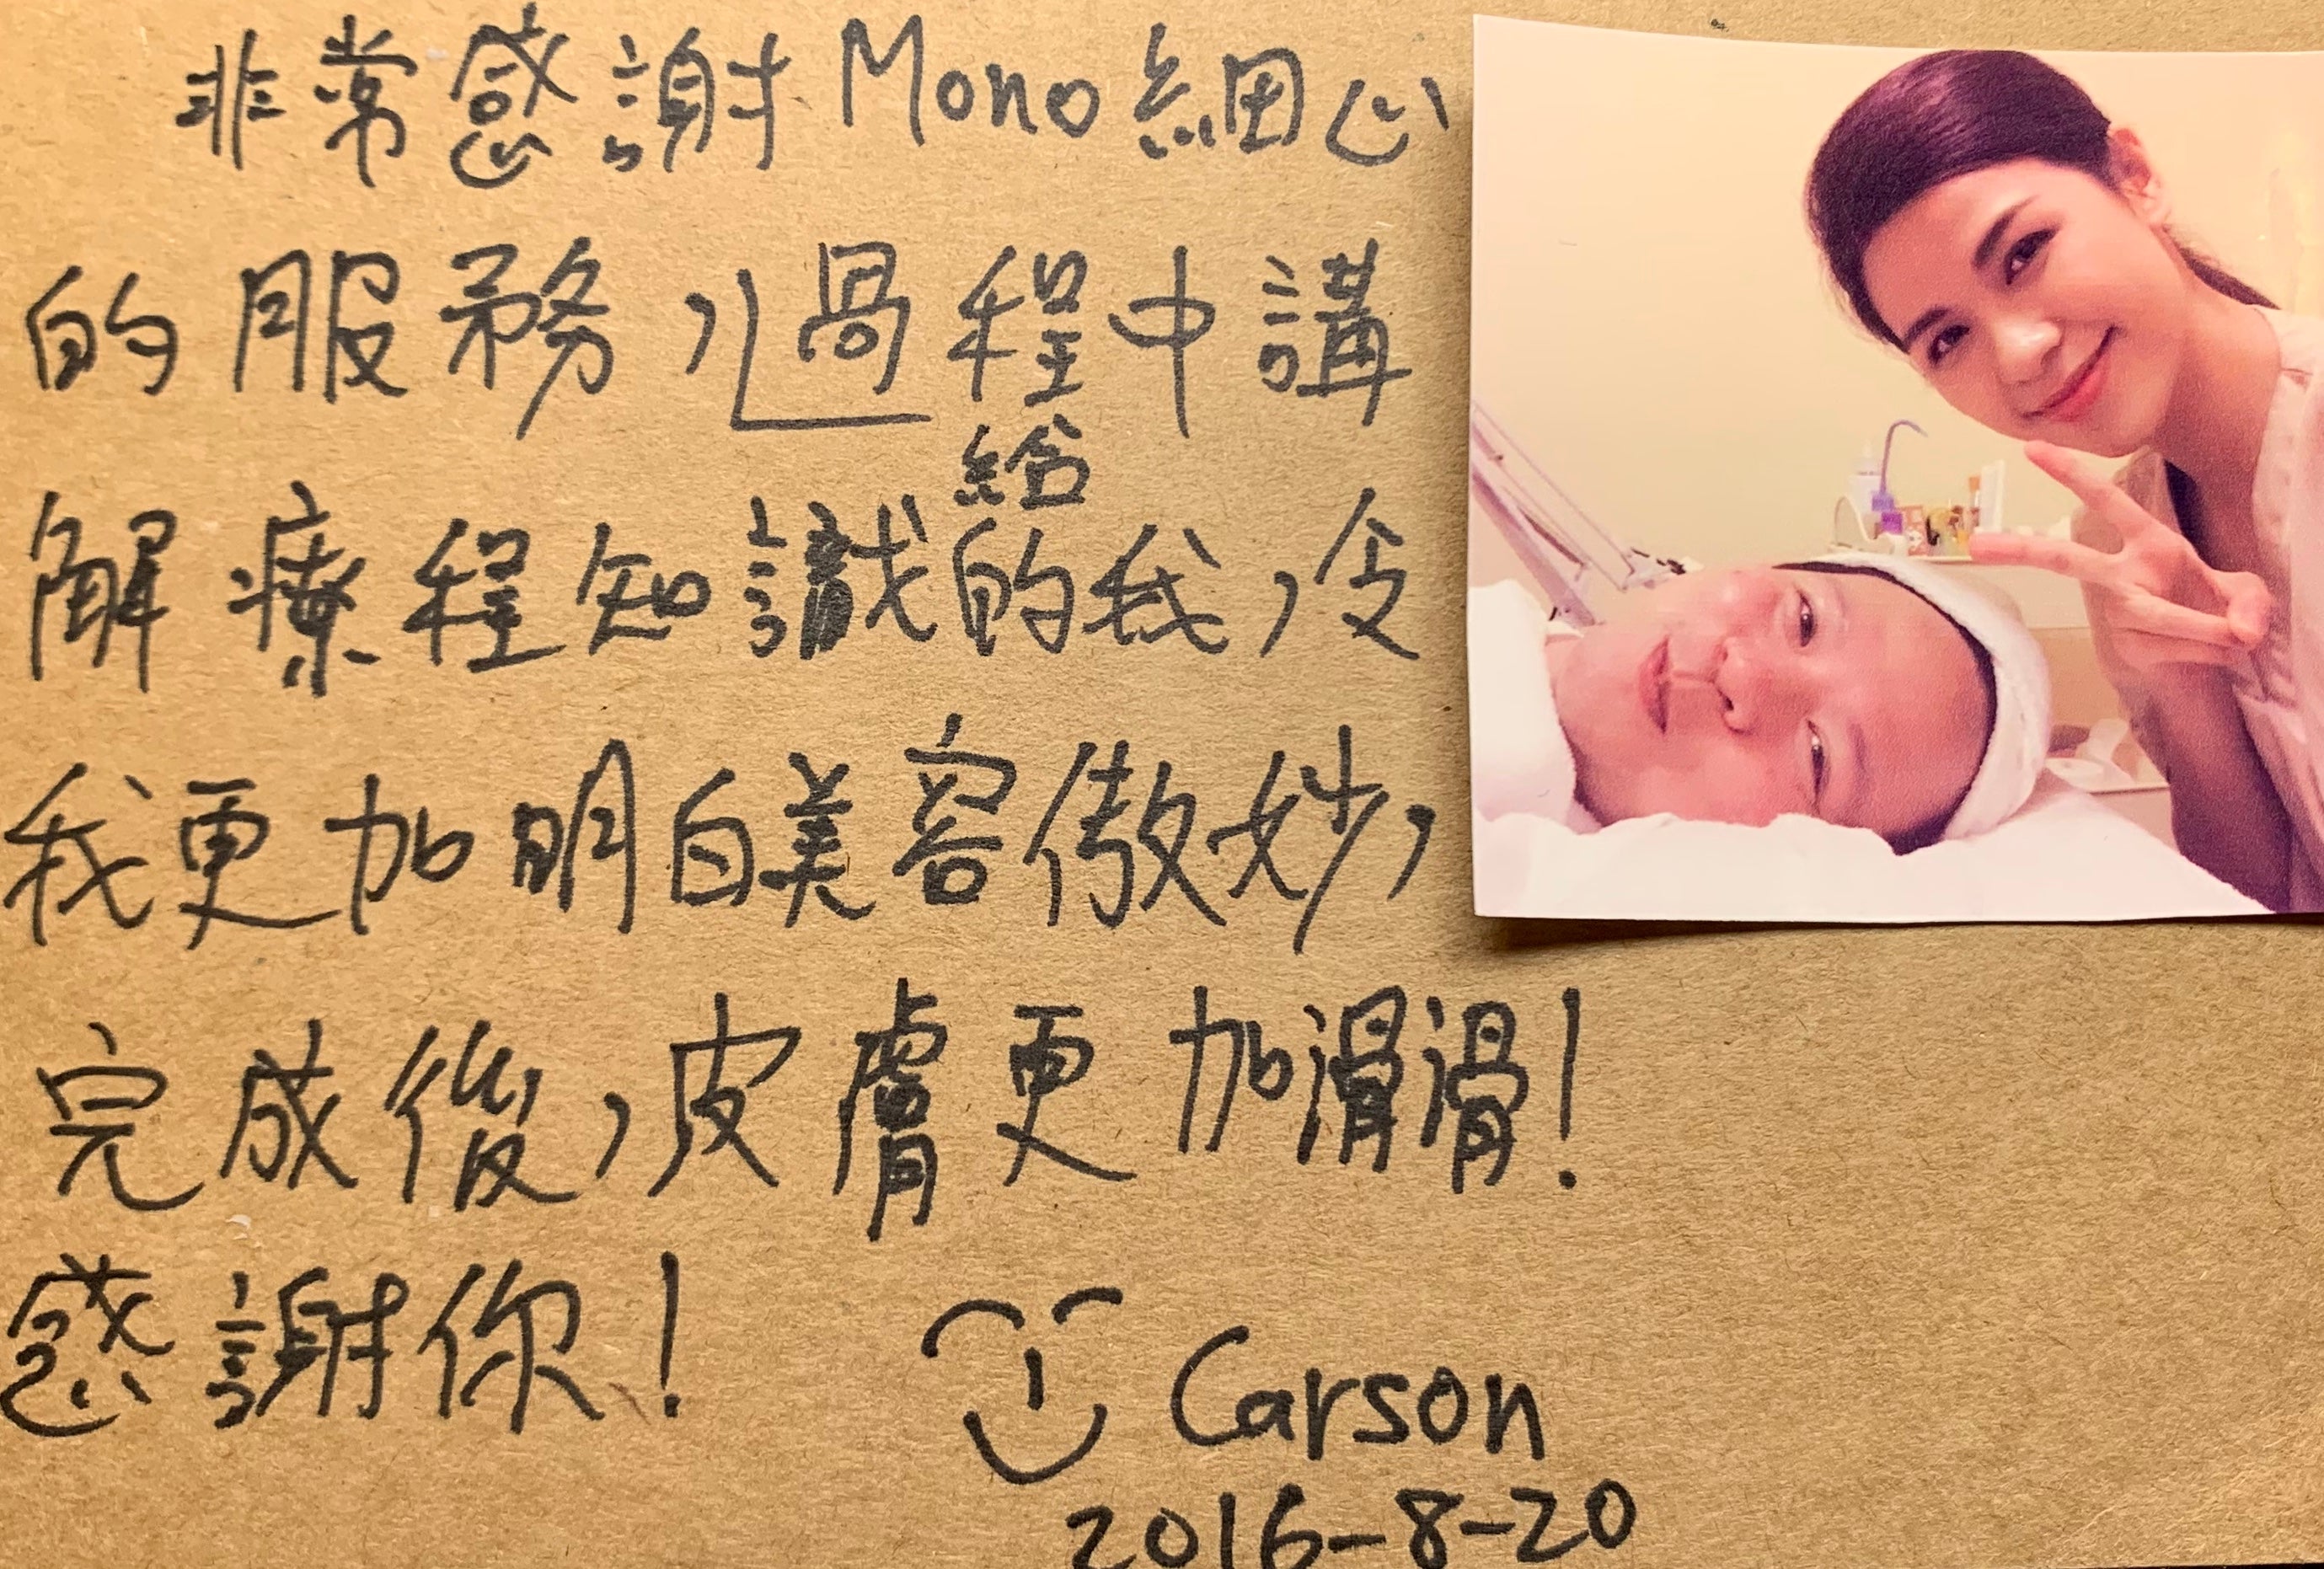 非常感謝Mono細心
的服務，過程中講
給
解療程知識的我，令
我更加明白美容傲妙，
完成後，皮膚更加滑滑！
感謝你！
Carson
2016-8-20